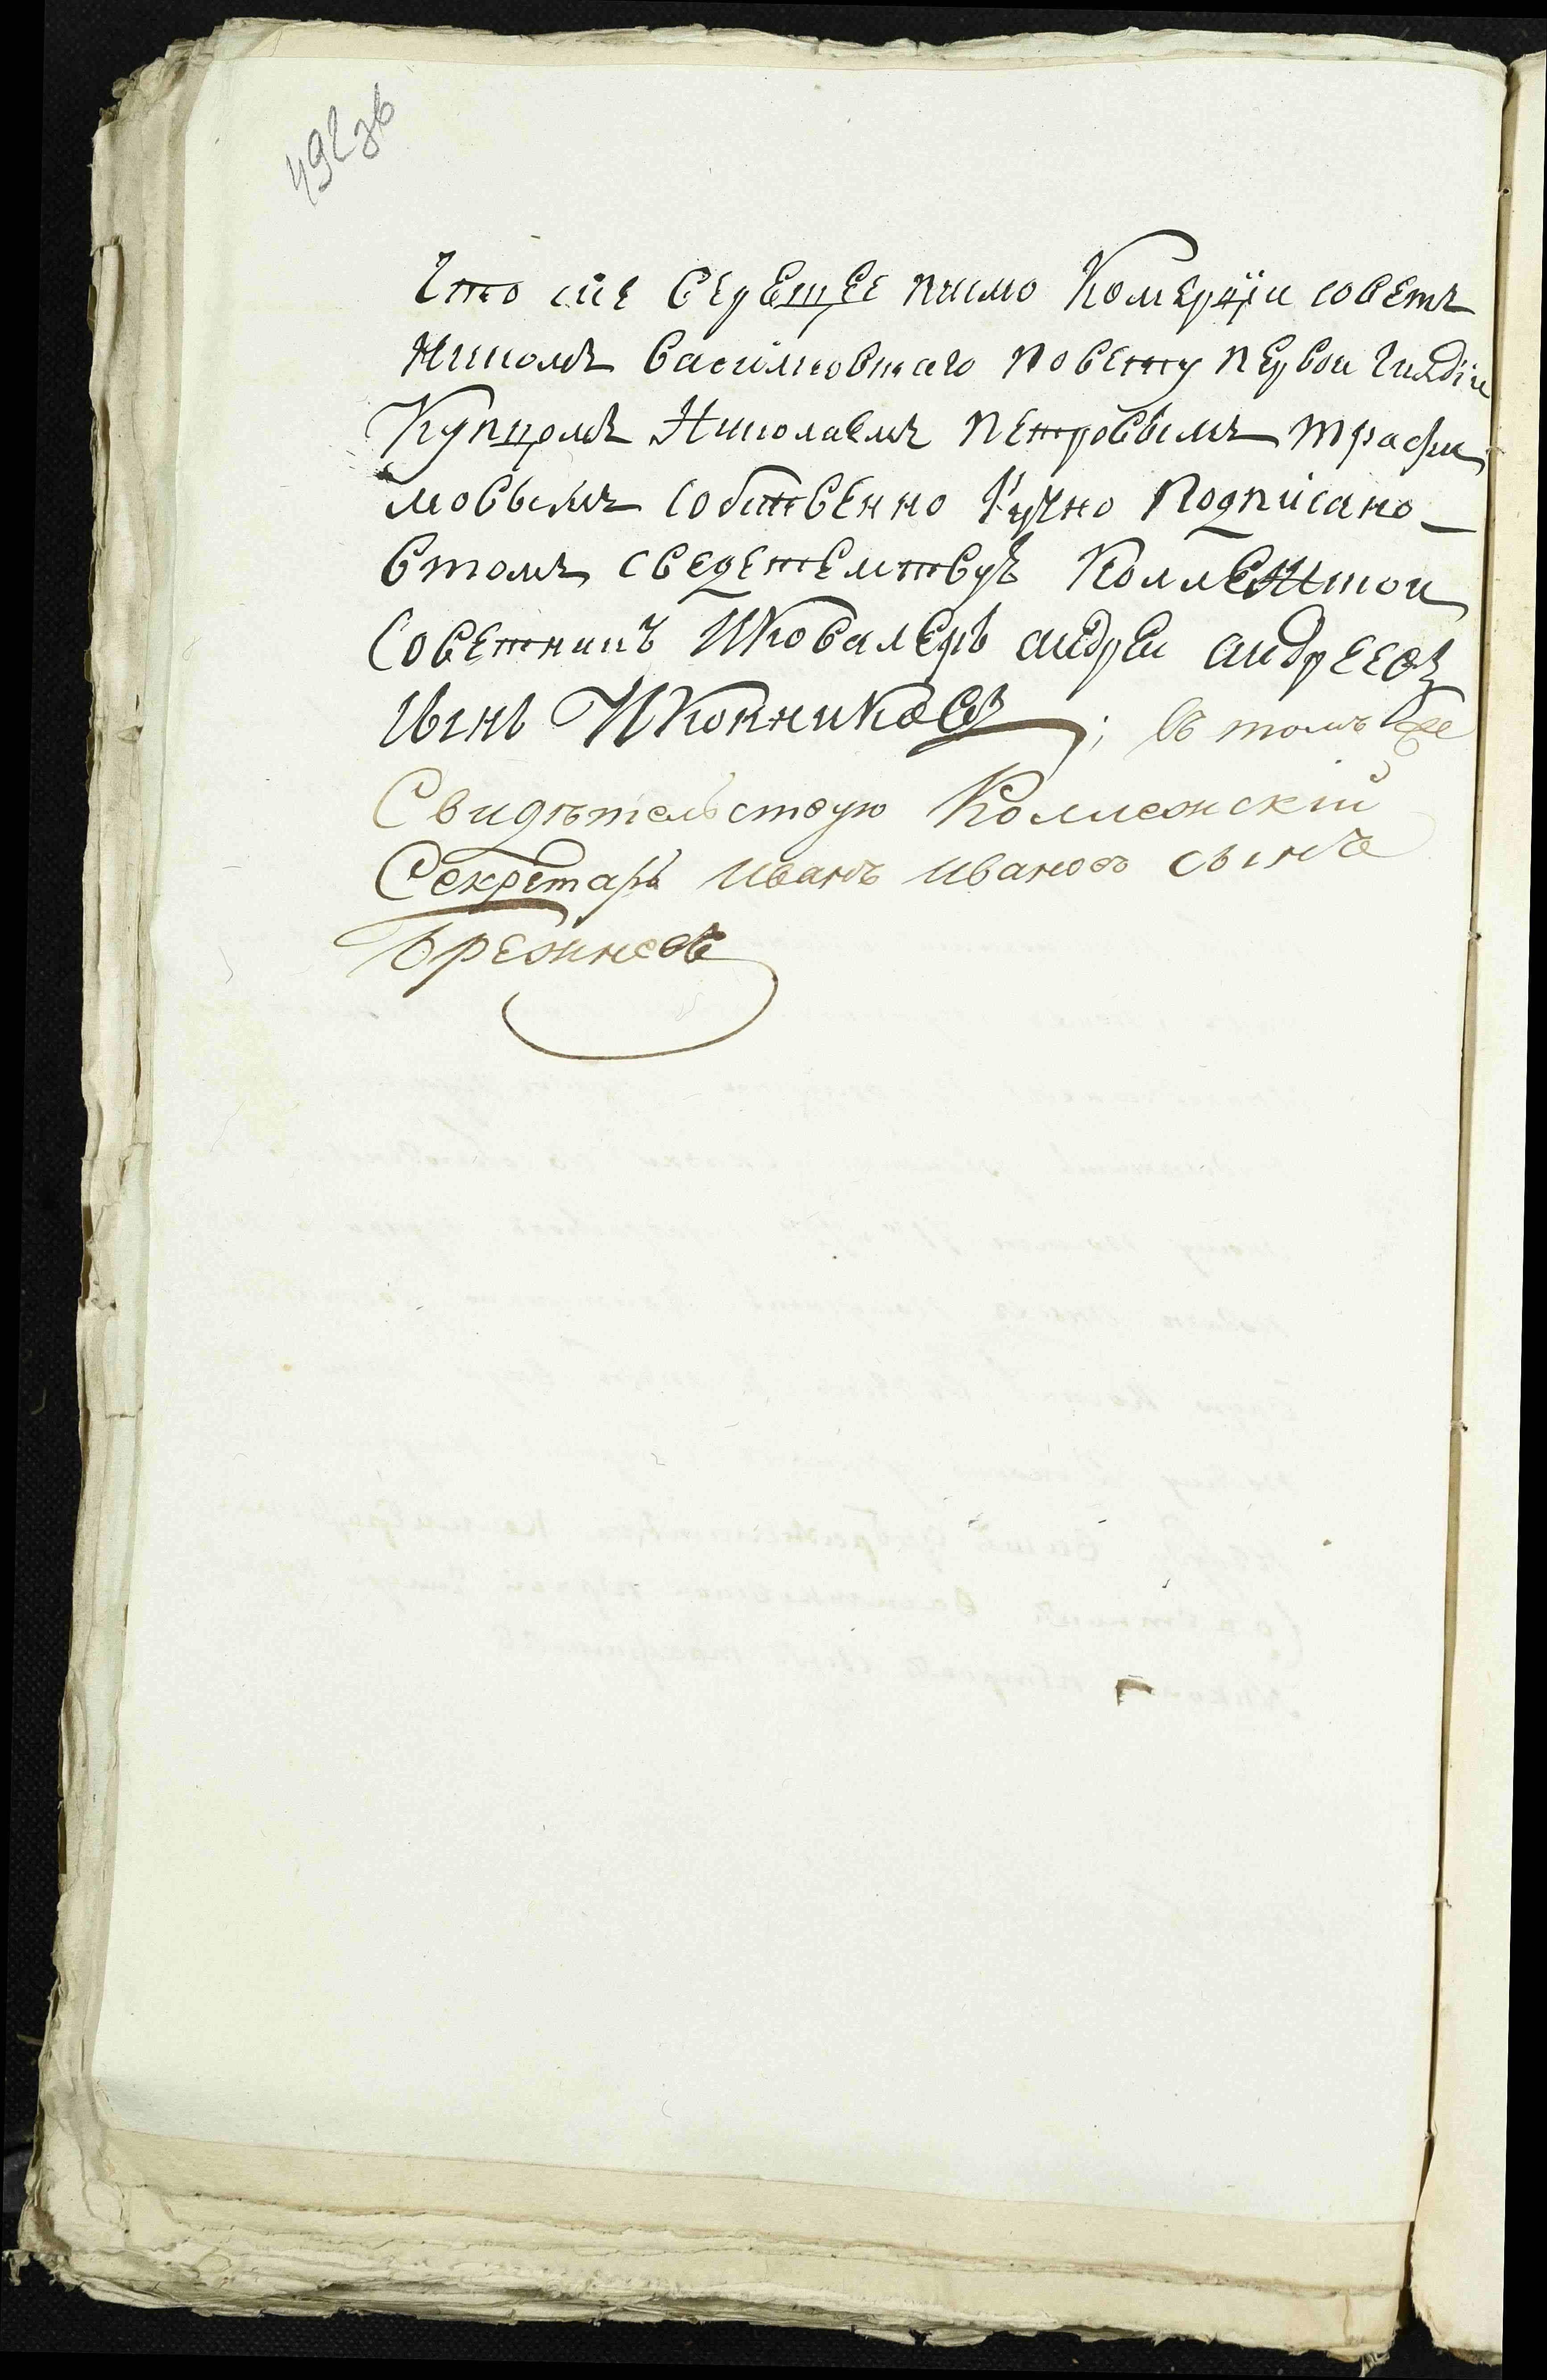 492 об
Что сие верещее писмо Комерции совет
никомъ Василковскаго повету первои гилдии
Купцомъ Николаемъ Петровымъ Трафи
мовымъ собственно ручно подписано
втомъ сведетелствуЪ Коллежскои
Советникъ И Ковалеръ андреи андреевъ
сынъ Иконниковъ; въ томъ же
Свидѣтельствую Коллежскій
Секретарь Иванъ Ивановъ сынъ
Брежневъ